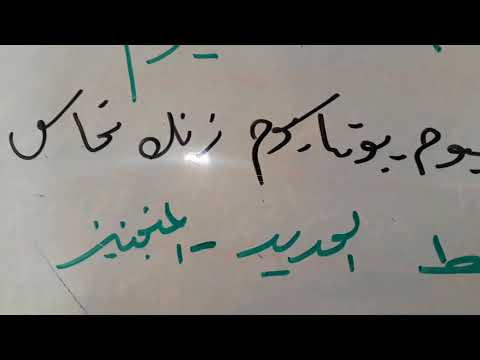 يوم بوتاسيوم زنك نحاس
ط الحديد - المنجنيز